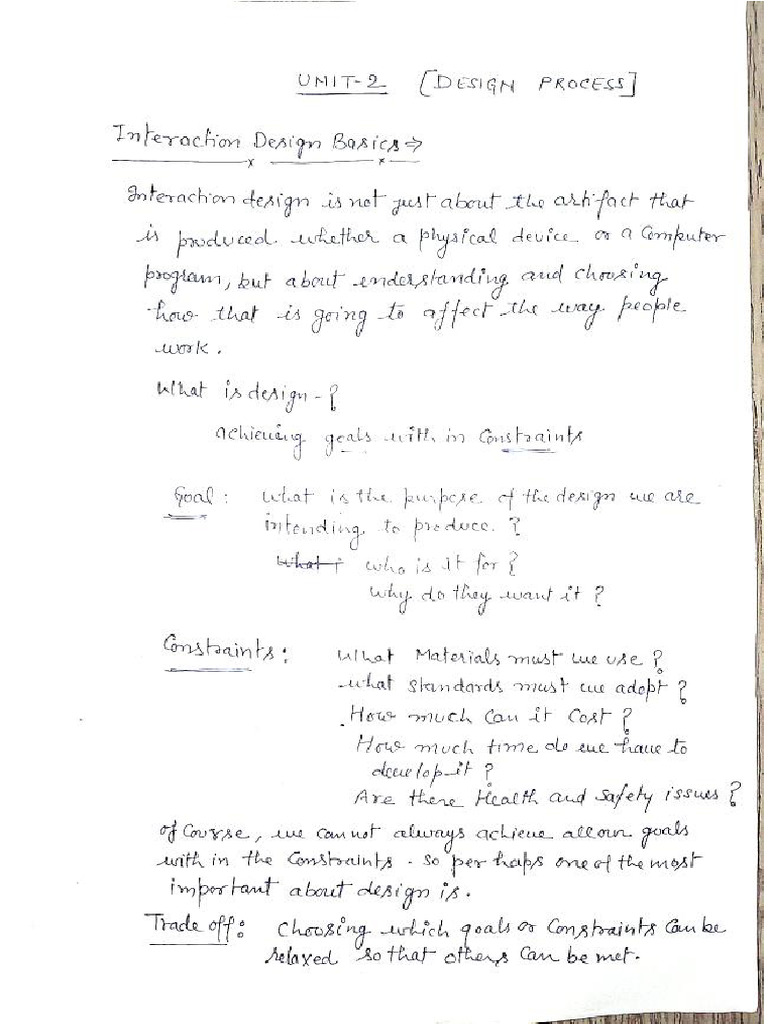 UNIT-2 [DESIGN PROCESS]
Interaction Design Basics ⇒
Interaction design is not just about the artifact that
is produced whether a physical device or a Computer
program, but about understanding and choosing
how that is going to affect the way people
work.
What is design - ?
achieving goals with in Constraints
Goal : What is the purpose of the design we are
intending to produce. ?
What i who is it for ?
Why do they want it ?
Constraints : What Materials must we use ?
what standards must we adopt ?
How much Can it Cost ?
How much time do we have to
develop it ?
Are there Health and Safety issues ?
Of Course, we can not always achieve all our goals
with in the Constraints. So per haps one of the most
important about design is.
Trade off : Choosing which goals or Constraints Can be
relaxed so that others Can be met.